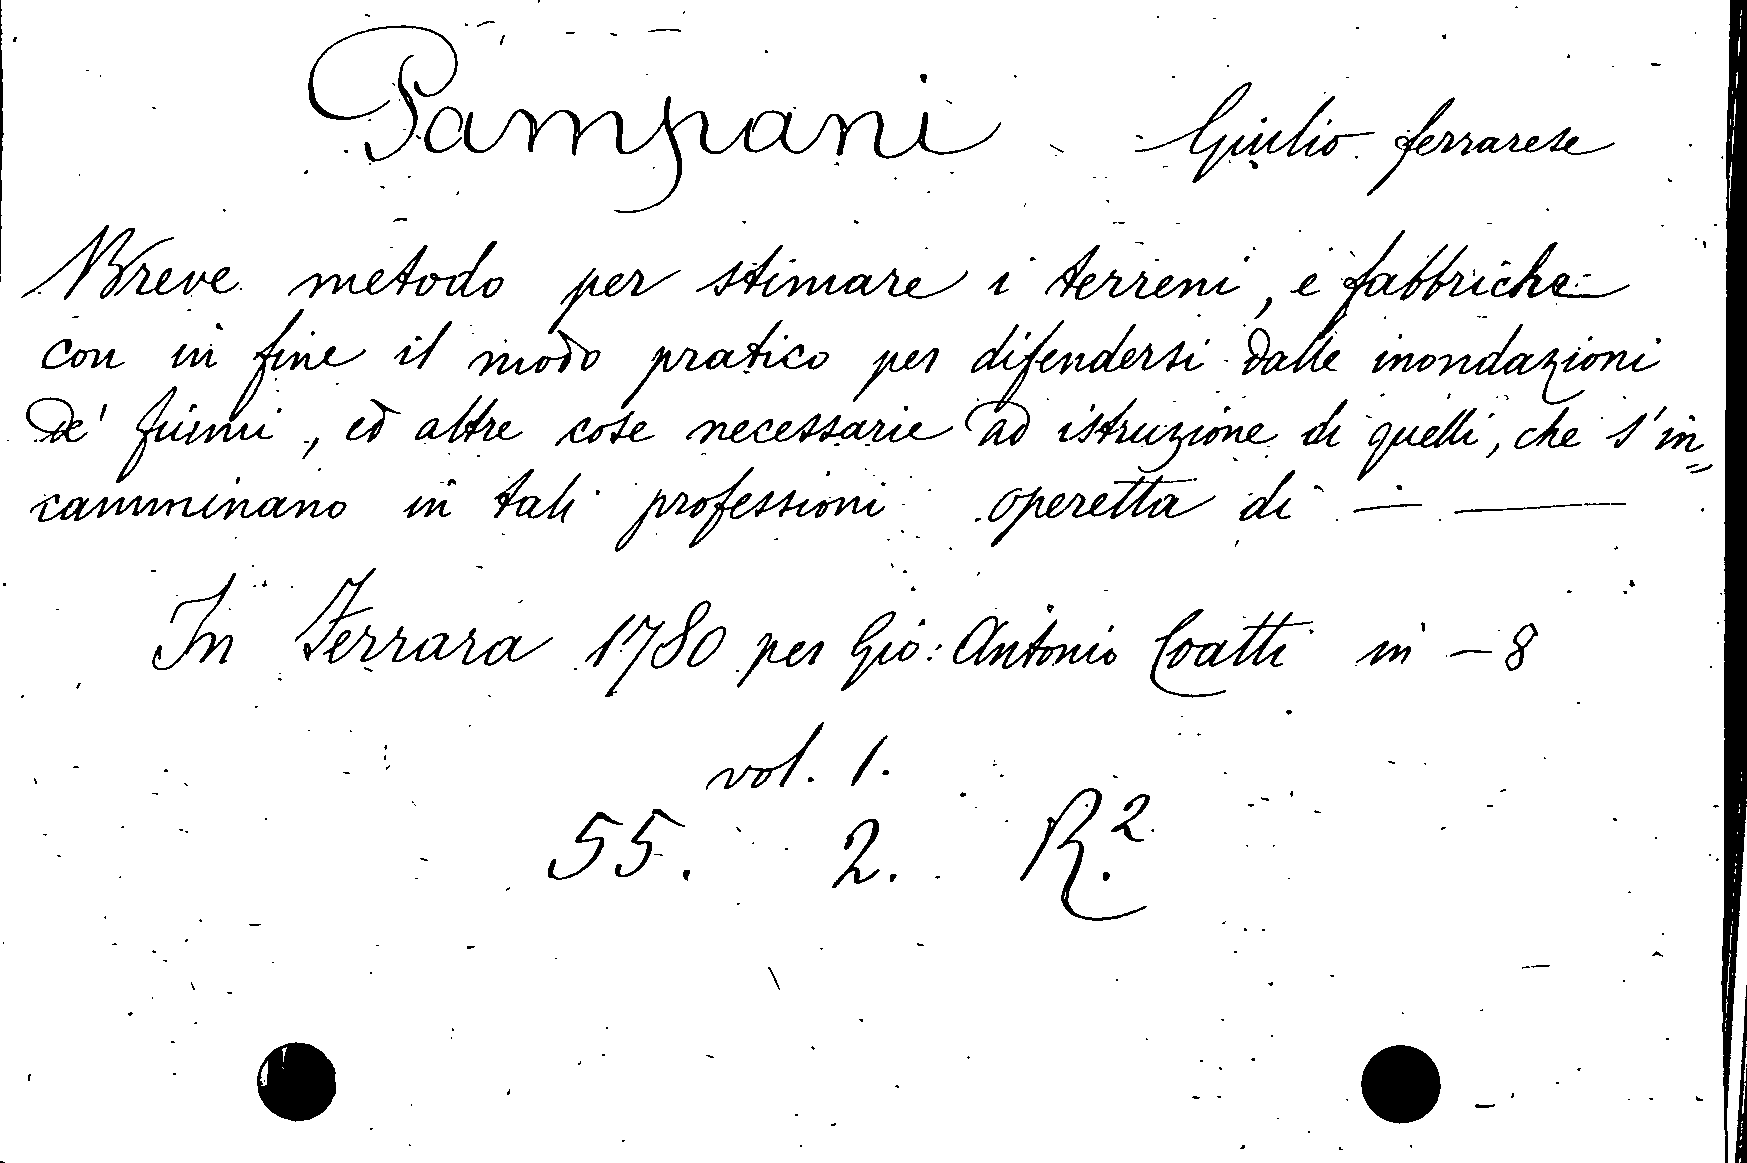 Pampani Giulio ferrarese
Breve metodo per stimare i terreni, e fabbriche
con in fine il modo pratico per difendersi dalle inondazioni
de' fiumi, ed altre cose necessarie ad istruzione di quelli, che s'in=
camminano in tali professioni operetta di — —
In Ferrara 1780 per Gio: Antonio Coatti in - 8
vol. 1.
55. 2. R.2